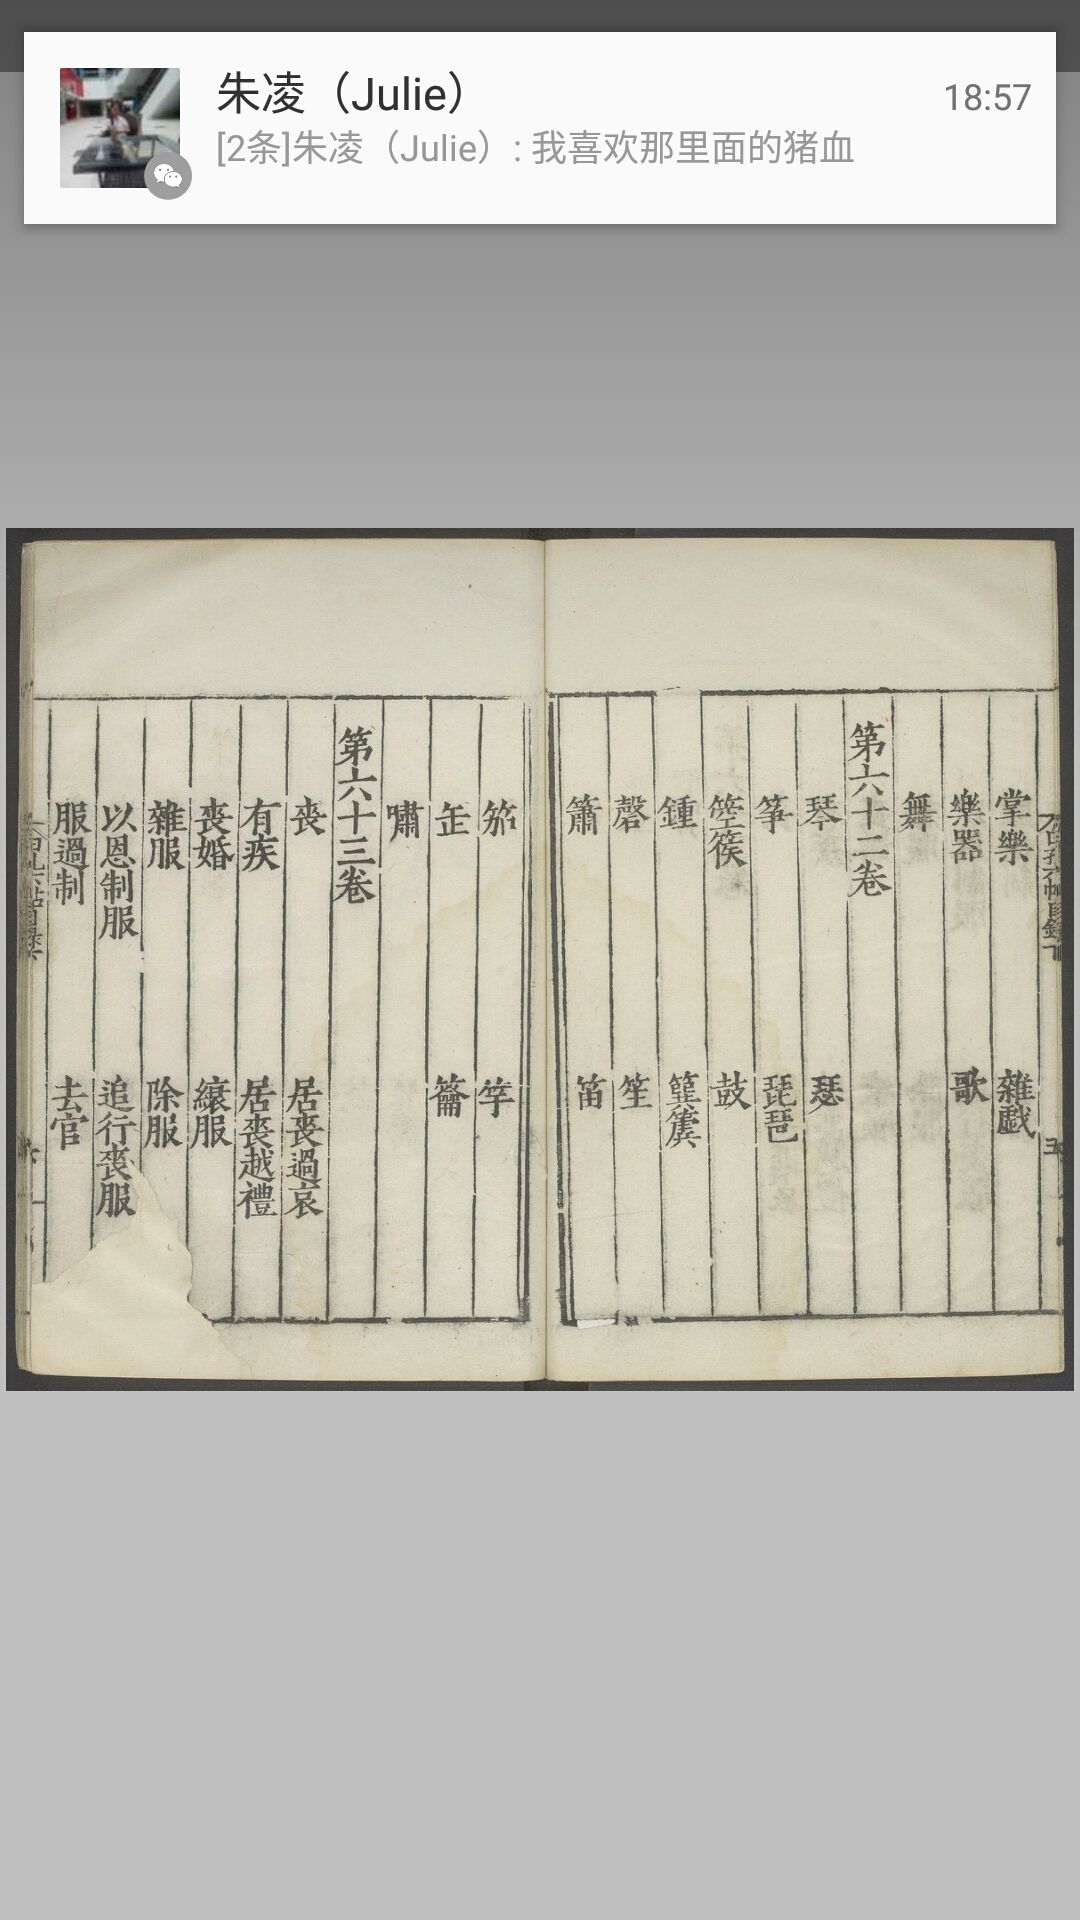 朱凌（Julie）
18:57
[2条]朱凌（Julie）: 我喜欢那里面的猪血
掌樂 雜戲
樂器 歌
舞
第六十二卷
琴 瑟
筝 琵琶
箜篌 鼓
鍾 簨簴
磬 笙
簫 笛
笳 竽
缶 籥
嘯
第六十三卷
喪 居喪過哀
有疾 居喪越禮
喪婚 縗服
雜服 除服
以恩制服 追行喪服
服過制 去官